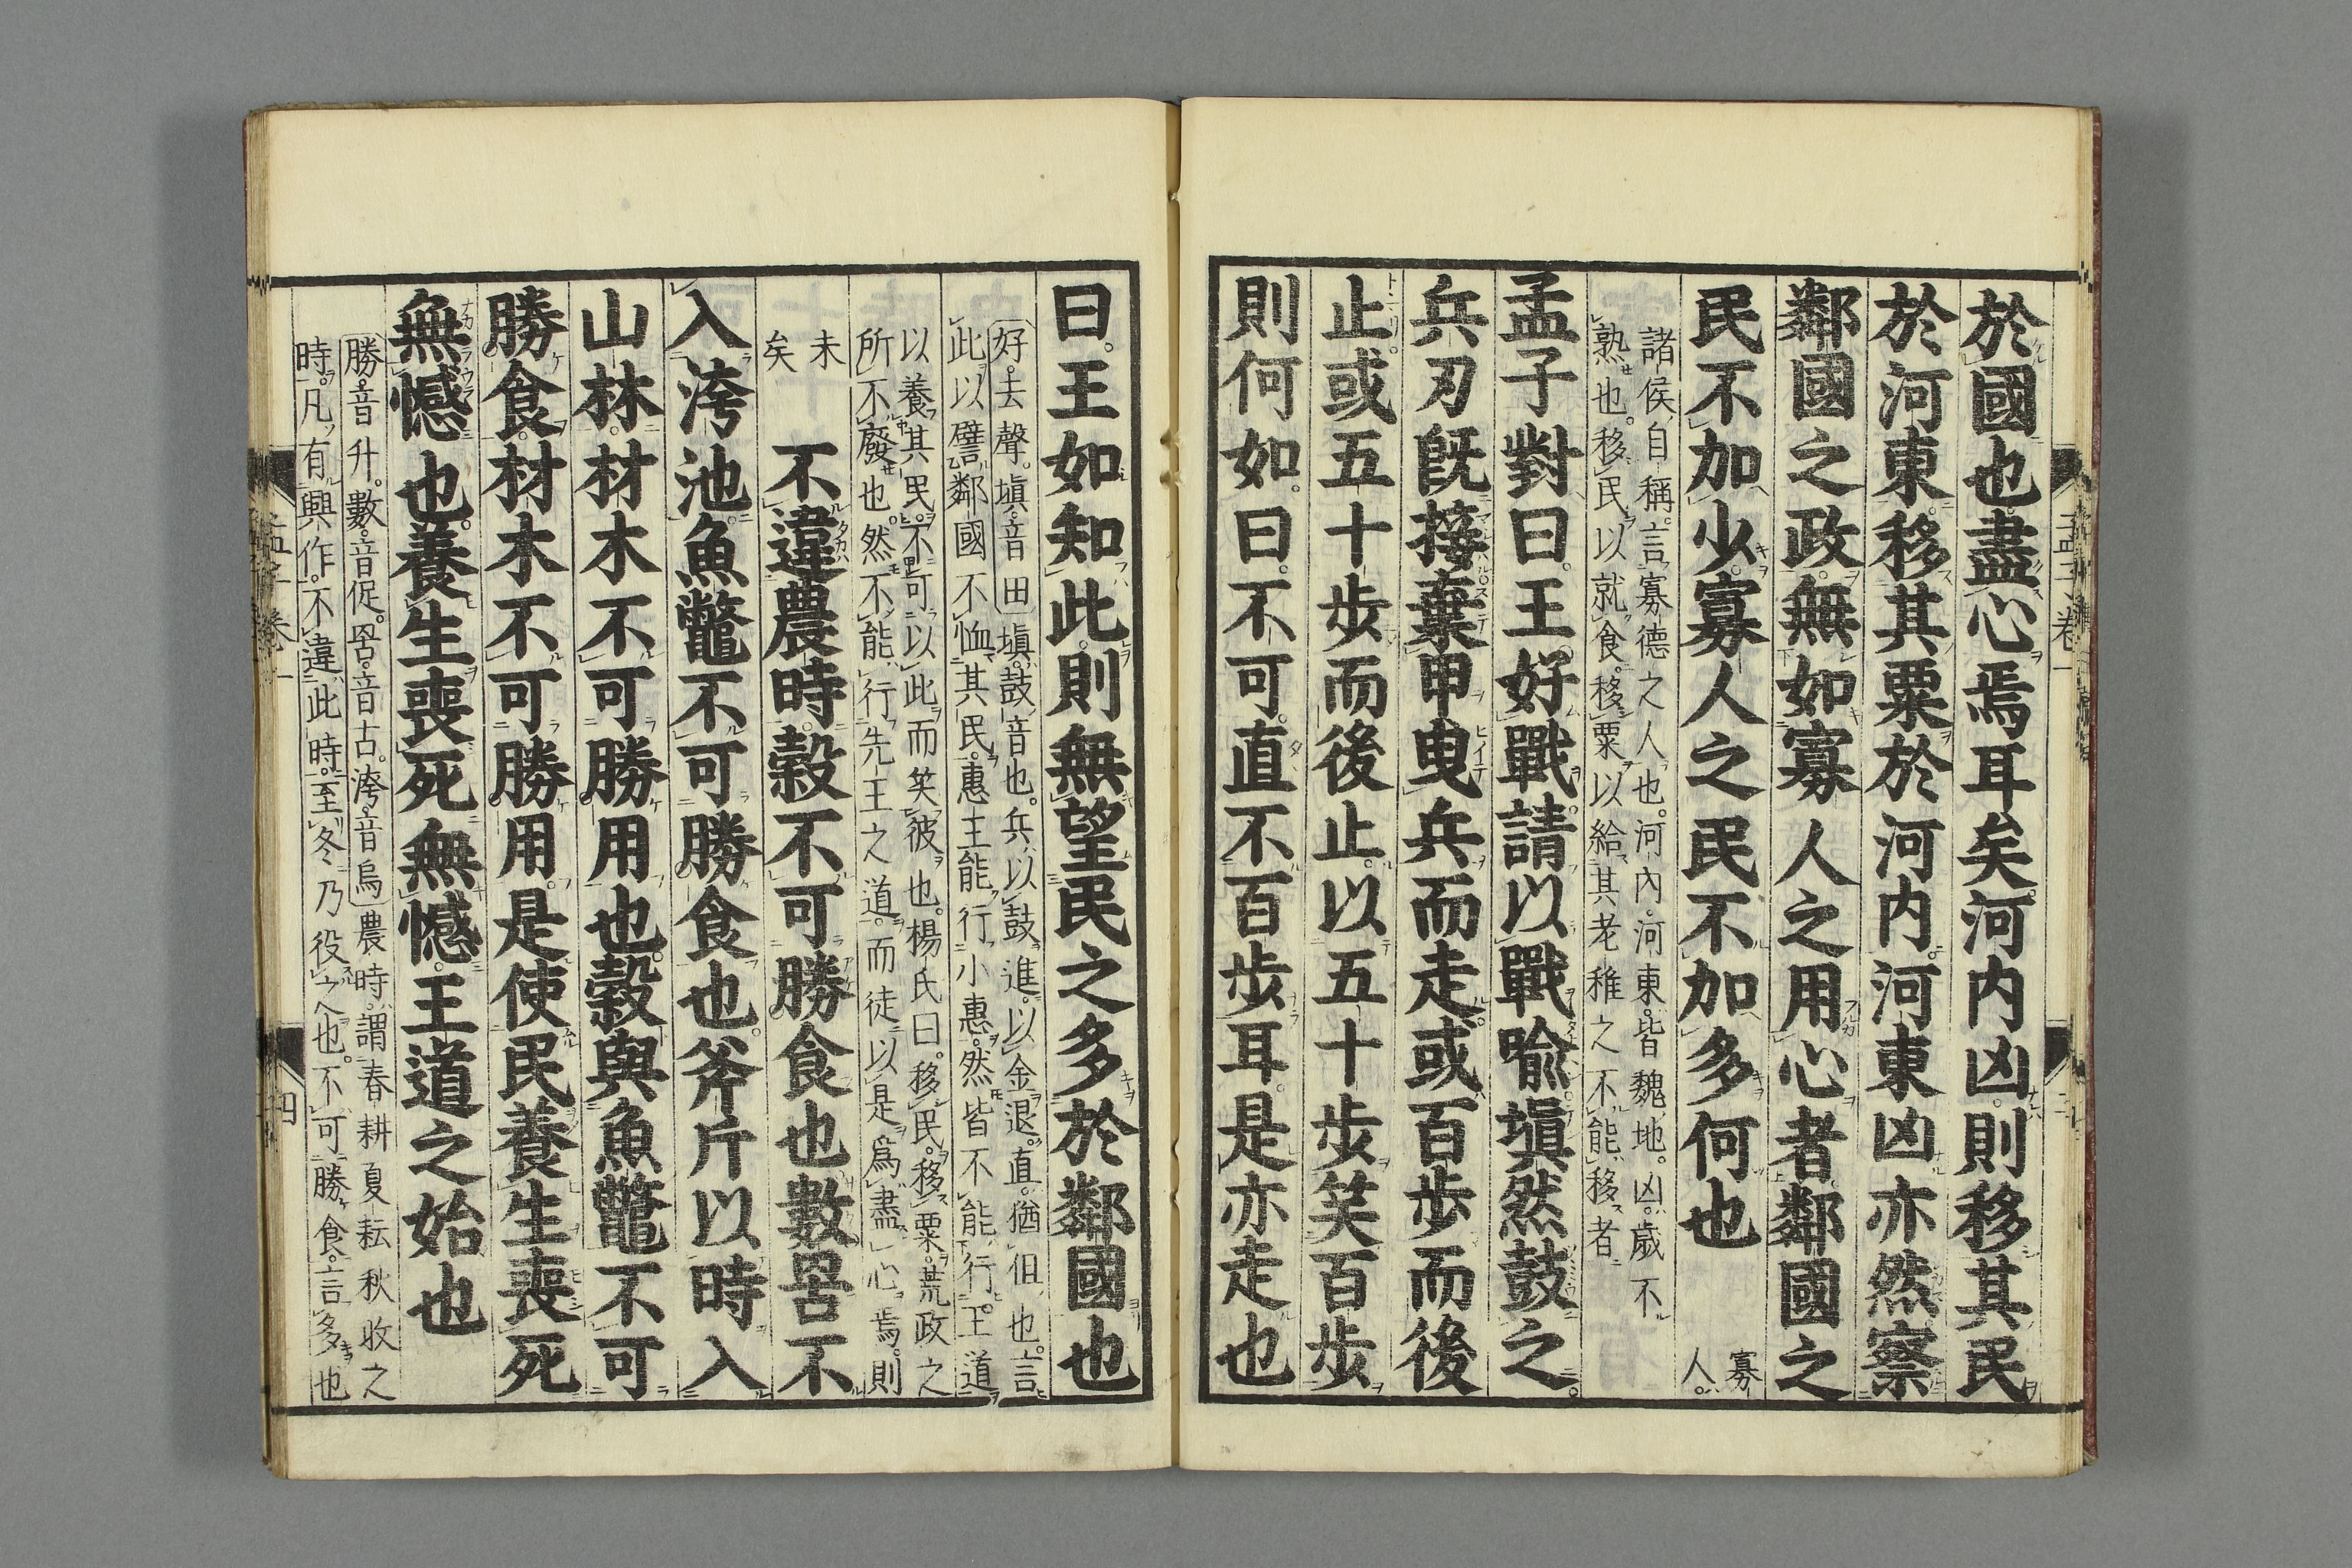 於國也盡心焉耳矣河内凶則移其民
於河東移其粟於河内河東凶亦然察
鄰國之政無如寡人之用心者鄰國之
民不加少寡人之民不加多何也
寡
人
諸侯自稱言寡德之人也河內河東皆魏地凶歲不
熟也移民以就食移粟以給其老稚之不能移者
孟子對曰王好戰請以戰喩塡然鼓之
兵刃旣接棄甲曳兵而走或百步而後
止或五十步而後止以五十步笑百步
則何如曰不可直不百步耳是亦走也
曰王如知此則無望民之多於鄰國也
好去聲塡音田塡鼓音也兵以鼓進以金退直猶但也言
此以譬鄰國不恤其民惠王能行小惠然皆不能行王道
以養其民不可以此而笑彼也楊氏曰移民移粟荒政之
所不廢也然不能行先王之道而徒以是爲盡心焉則
未
矣
不違農時穀不可勝食也數罟不
入洿池魚鼈不可勝食也斧斤以時入
山林材木不可勝用也穀與魚鼈不可
勝食材木不可勝用是使民養生喪死
無憾也養生喪死無憾王道之始也
勝音升數音促罟音古洿音烏農時謂春耕夏耘秋收之
時凡有興作不違此時至冬乃役之也不可勝食言多也